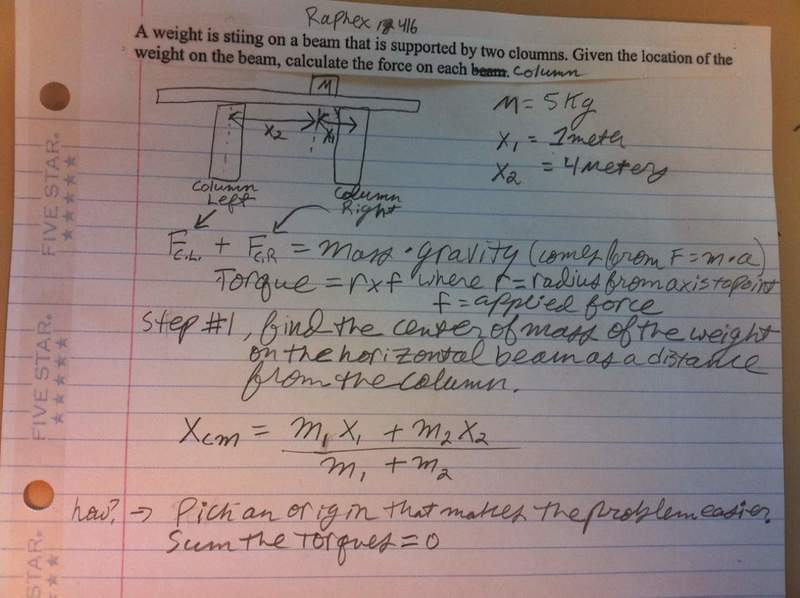 Raphex 416
A weight is stiing on a beam that is supported by two cloumns. Given the location of the
weight on the beam, calculate the force on each beam. Column
M
M = 5 Kg
X2
X1
X1 = 1 meter
X2 = 4 meters
Column
Left
Column
Right
FC.L. + FC.R = mass · gravity (comes from F = m · a)
Torque = r x f where r = radius from axis to point
f = applied force
Step #1, find the center of mass of the weight
on the horizontal beam as a distance
from the column.
Xcm = m1 X1 + m2 X2
m1 + m2
how? → Pick an origin that makes the problem easier.
Sum the torques = 0
FIVE STAR.
FIVE STAR.
STAR.